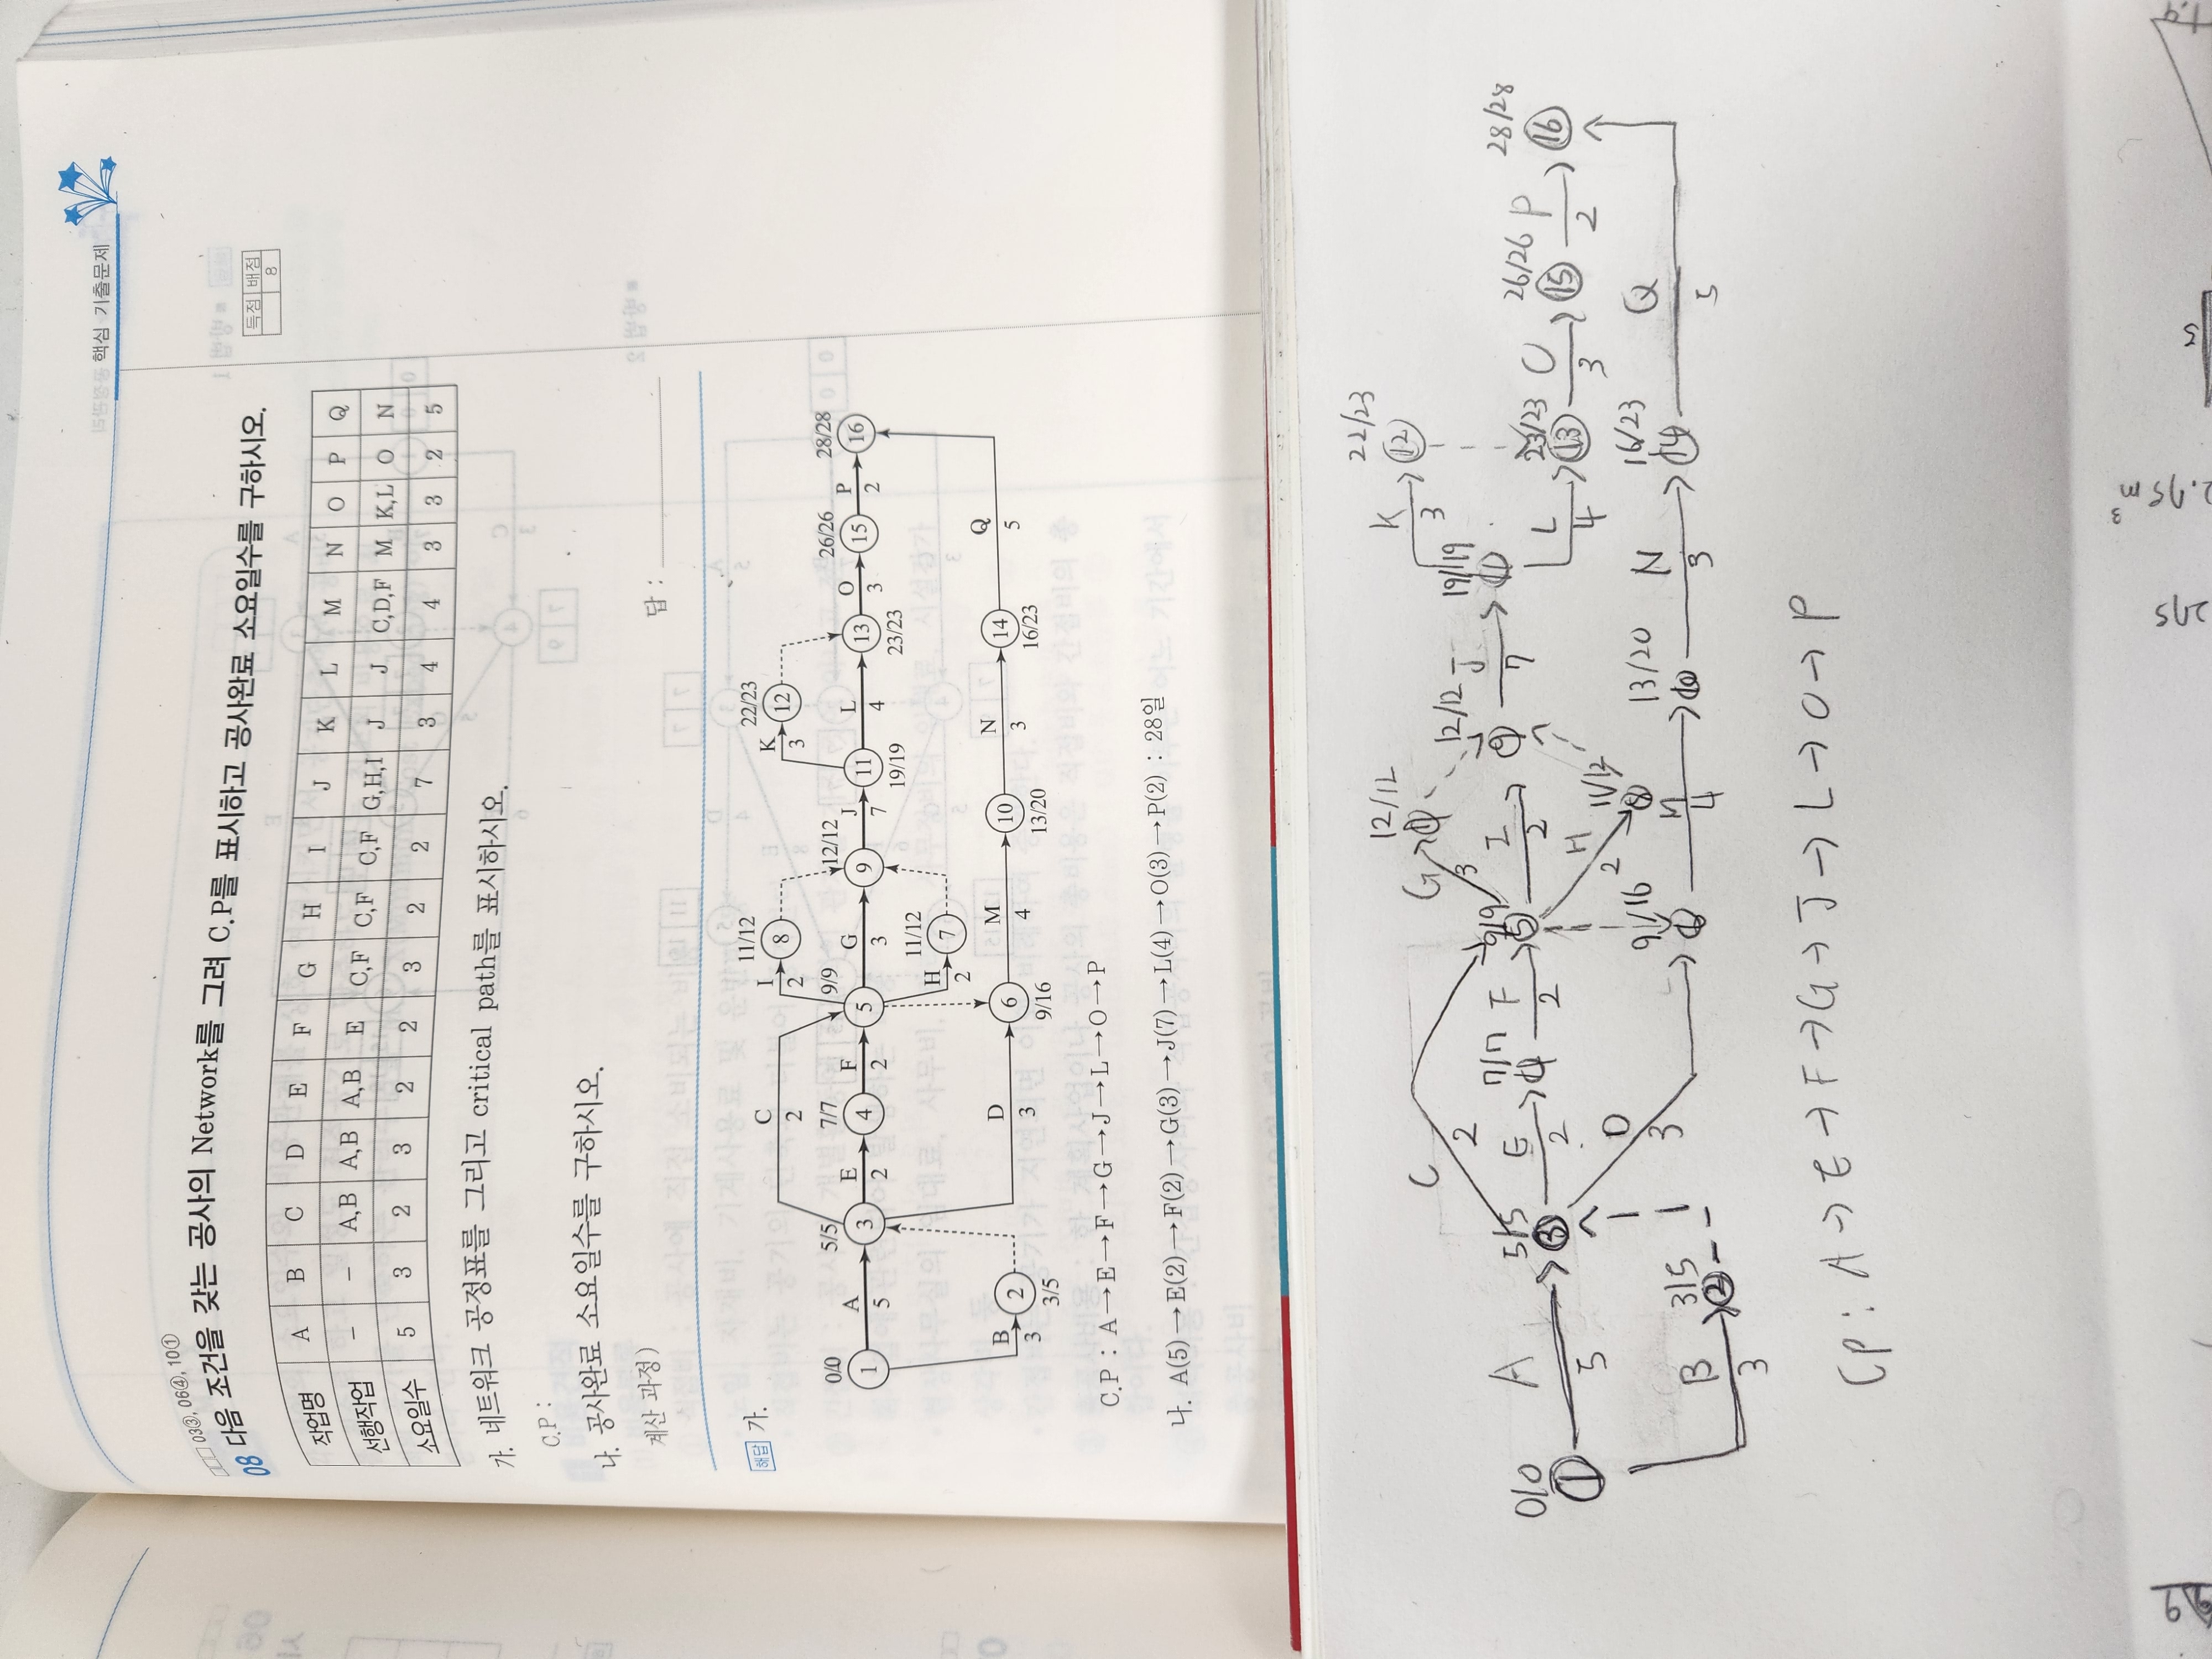 핵심 기출문제
득점 배점
8
03③, 06④, 10①
08 다음 조건을 갖는 공사의 Network를 그려 C.P를 표시하고 공사완료 소요일수를 구하시오.
작업명 A B C D E F G H I J K L M N O P Q
선행작업 – – A,B A,B A,B E C,F C,F C,F G,H,I J J C,D,F M K,L O N
소요일수 5 3 2 3 2 2 3 2 2 7 3 4 4 3 3 2 5
가. 네트워크 공정표를 그리고 critical path를 표시하시오.
C.P :
나. 공사완료 소요일수를 구하시오.
계산 과정)
답 :
해답 가.
K 3 22/23 12
I 2 11/12 8
C 2
0/0 1 A 5 5/5 3 E 2 7/7 4 F 2 9/9 5 G 3 12/12 9 J 7 11 19/19 L 4 13 23/23 O 3 26/26 15 P 2 28/28 16
H 2 11/12 7
B 3 2 3/5
D 3 6 9/16 M 4 10 13/20 N 3 14 16/23 Q 5
C.P : A→E→F→G→J→L→O→P
나. A(5)→E(2)→F(2)→G(3)→J(7)→L(4)→O(3)→P(2) : 28일
K 3 22/23 12
G 3 12/12
C 2
0/0 1 A 5 5/5 3 E 2 7/7 4 F 2 9/9 5 I 2 12/12 9 J 7 19/19 11 L 4 23/23 13 O 3 26/26 15 P 2 28/28 16
H 2 11/12 8
B 3 3/5 2
D 3 9/16 6 M 4 13/20 10 N 3 16/23 14 Q 5
CP : A → E → F → G → J → L → O → P